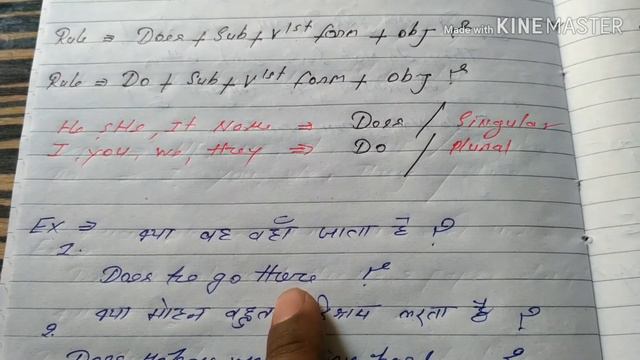 Made with KINEMASTER
Rule ⇒ Does + Sub + V1st form + obj ?
Rule ⇒ Do + Sub + V1st form + obj ?
He, sHe, It Name ⇒ Does / Singular
I, you, we, they ⇒ Do / Plural
Ex ⇒ क्या वह वहाँ जाता है ?
1.
Does he go there ?
2. क्या मोहन करता है ?
Does